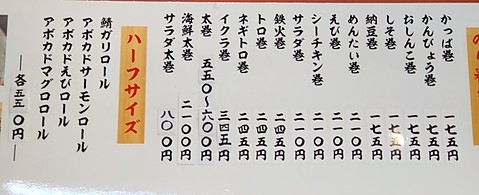 かっぱ巻 一七五円
かんぴょう巻 一七五円
おしんこ巻 一七五円
しそ巻 一七五円
納豆巻 一七五円
めんたい巻 二一〇円
えび巻 二一〇円
シーチキン巻 二一〇円
サラダ巻 二一〇円
鉄火巻 二四五円
トロ巻 二四五円
ネギトロ巻 二四五円
イクラ巻 三四五円
太巻 五五〇〜六〇〇円
海鮮太巻 二一〇〇円
サラダ太巻 八〇〇円
ハーフサイズ
鯖ガリロール
アボカドサーモンロール
アボカドえびロール
アボカドマグロロール
―各五五〇円―